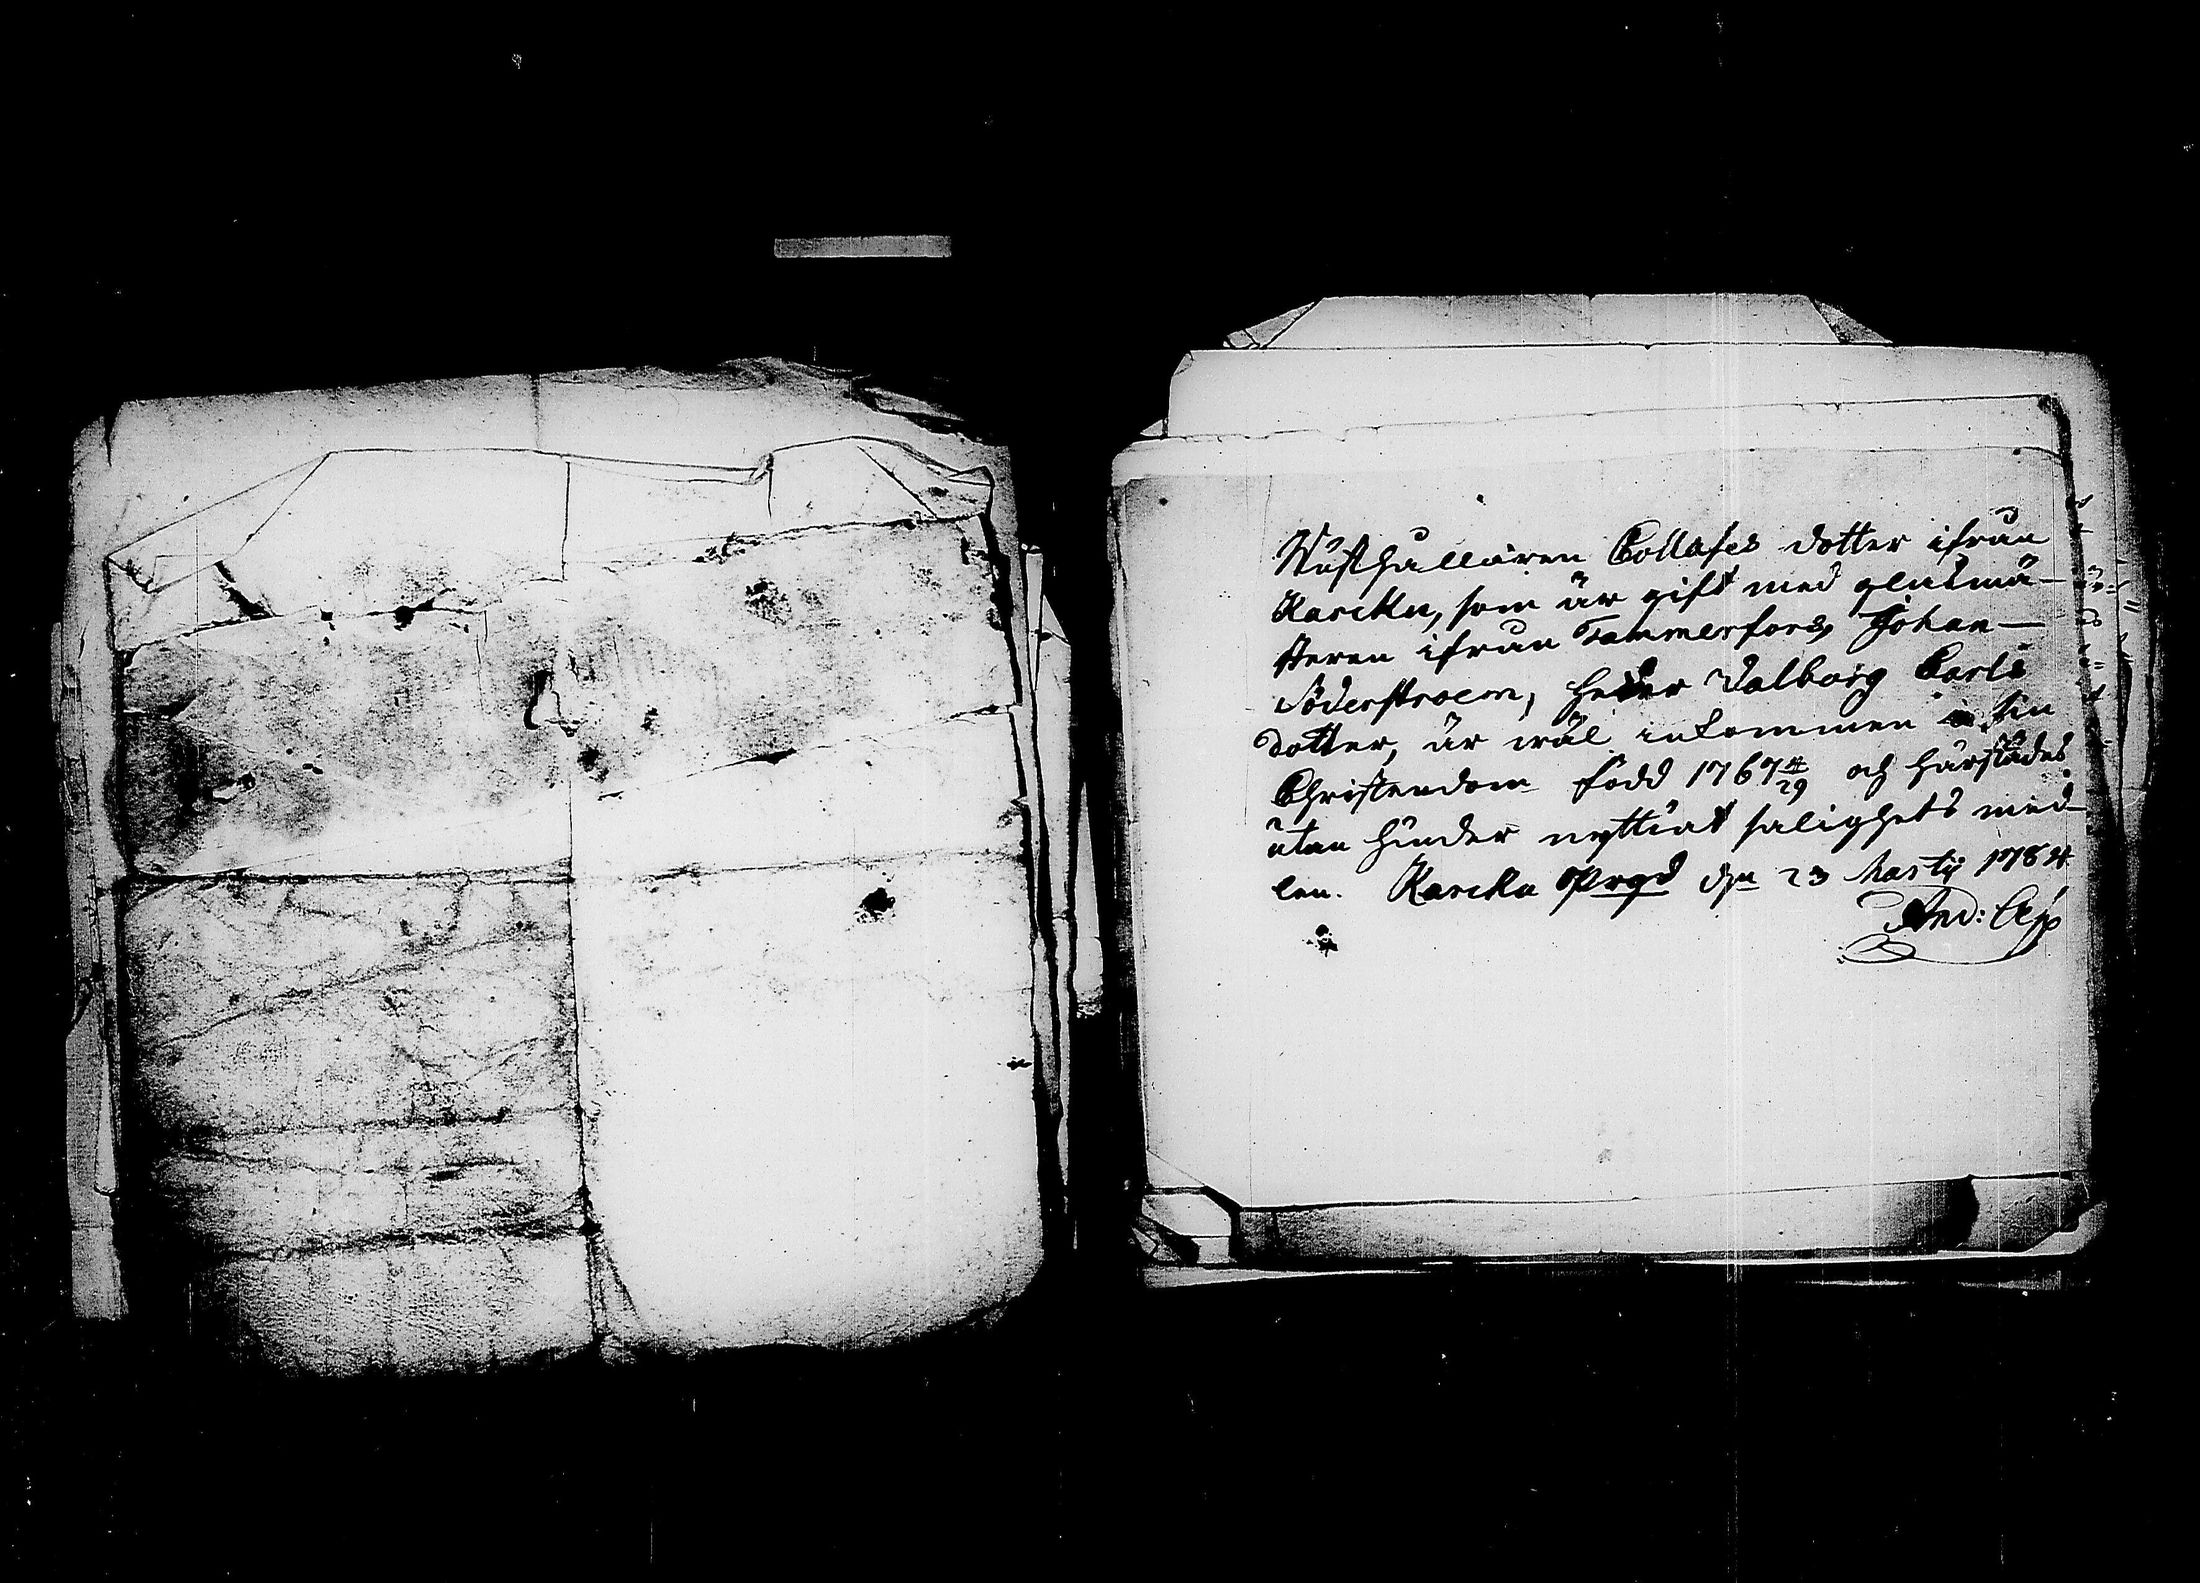 Rusthållaren Collases dotter ifrån
Karcku, som är gift med glasmä-
steren ifrån Tammerfors, Johan
Söderstroem, heder Valborg Carls
dotter, är wäl inkommen i sin
Christendom född 1767 4/29 och härstädes
utan hinder nyttiat salighets med-
len. Karcku Prgd d. 23 Martij 1784
And: